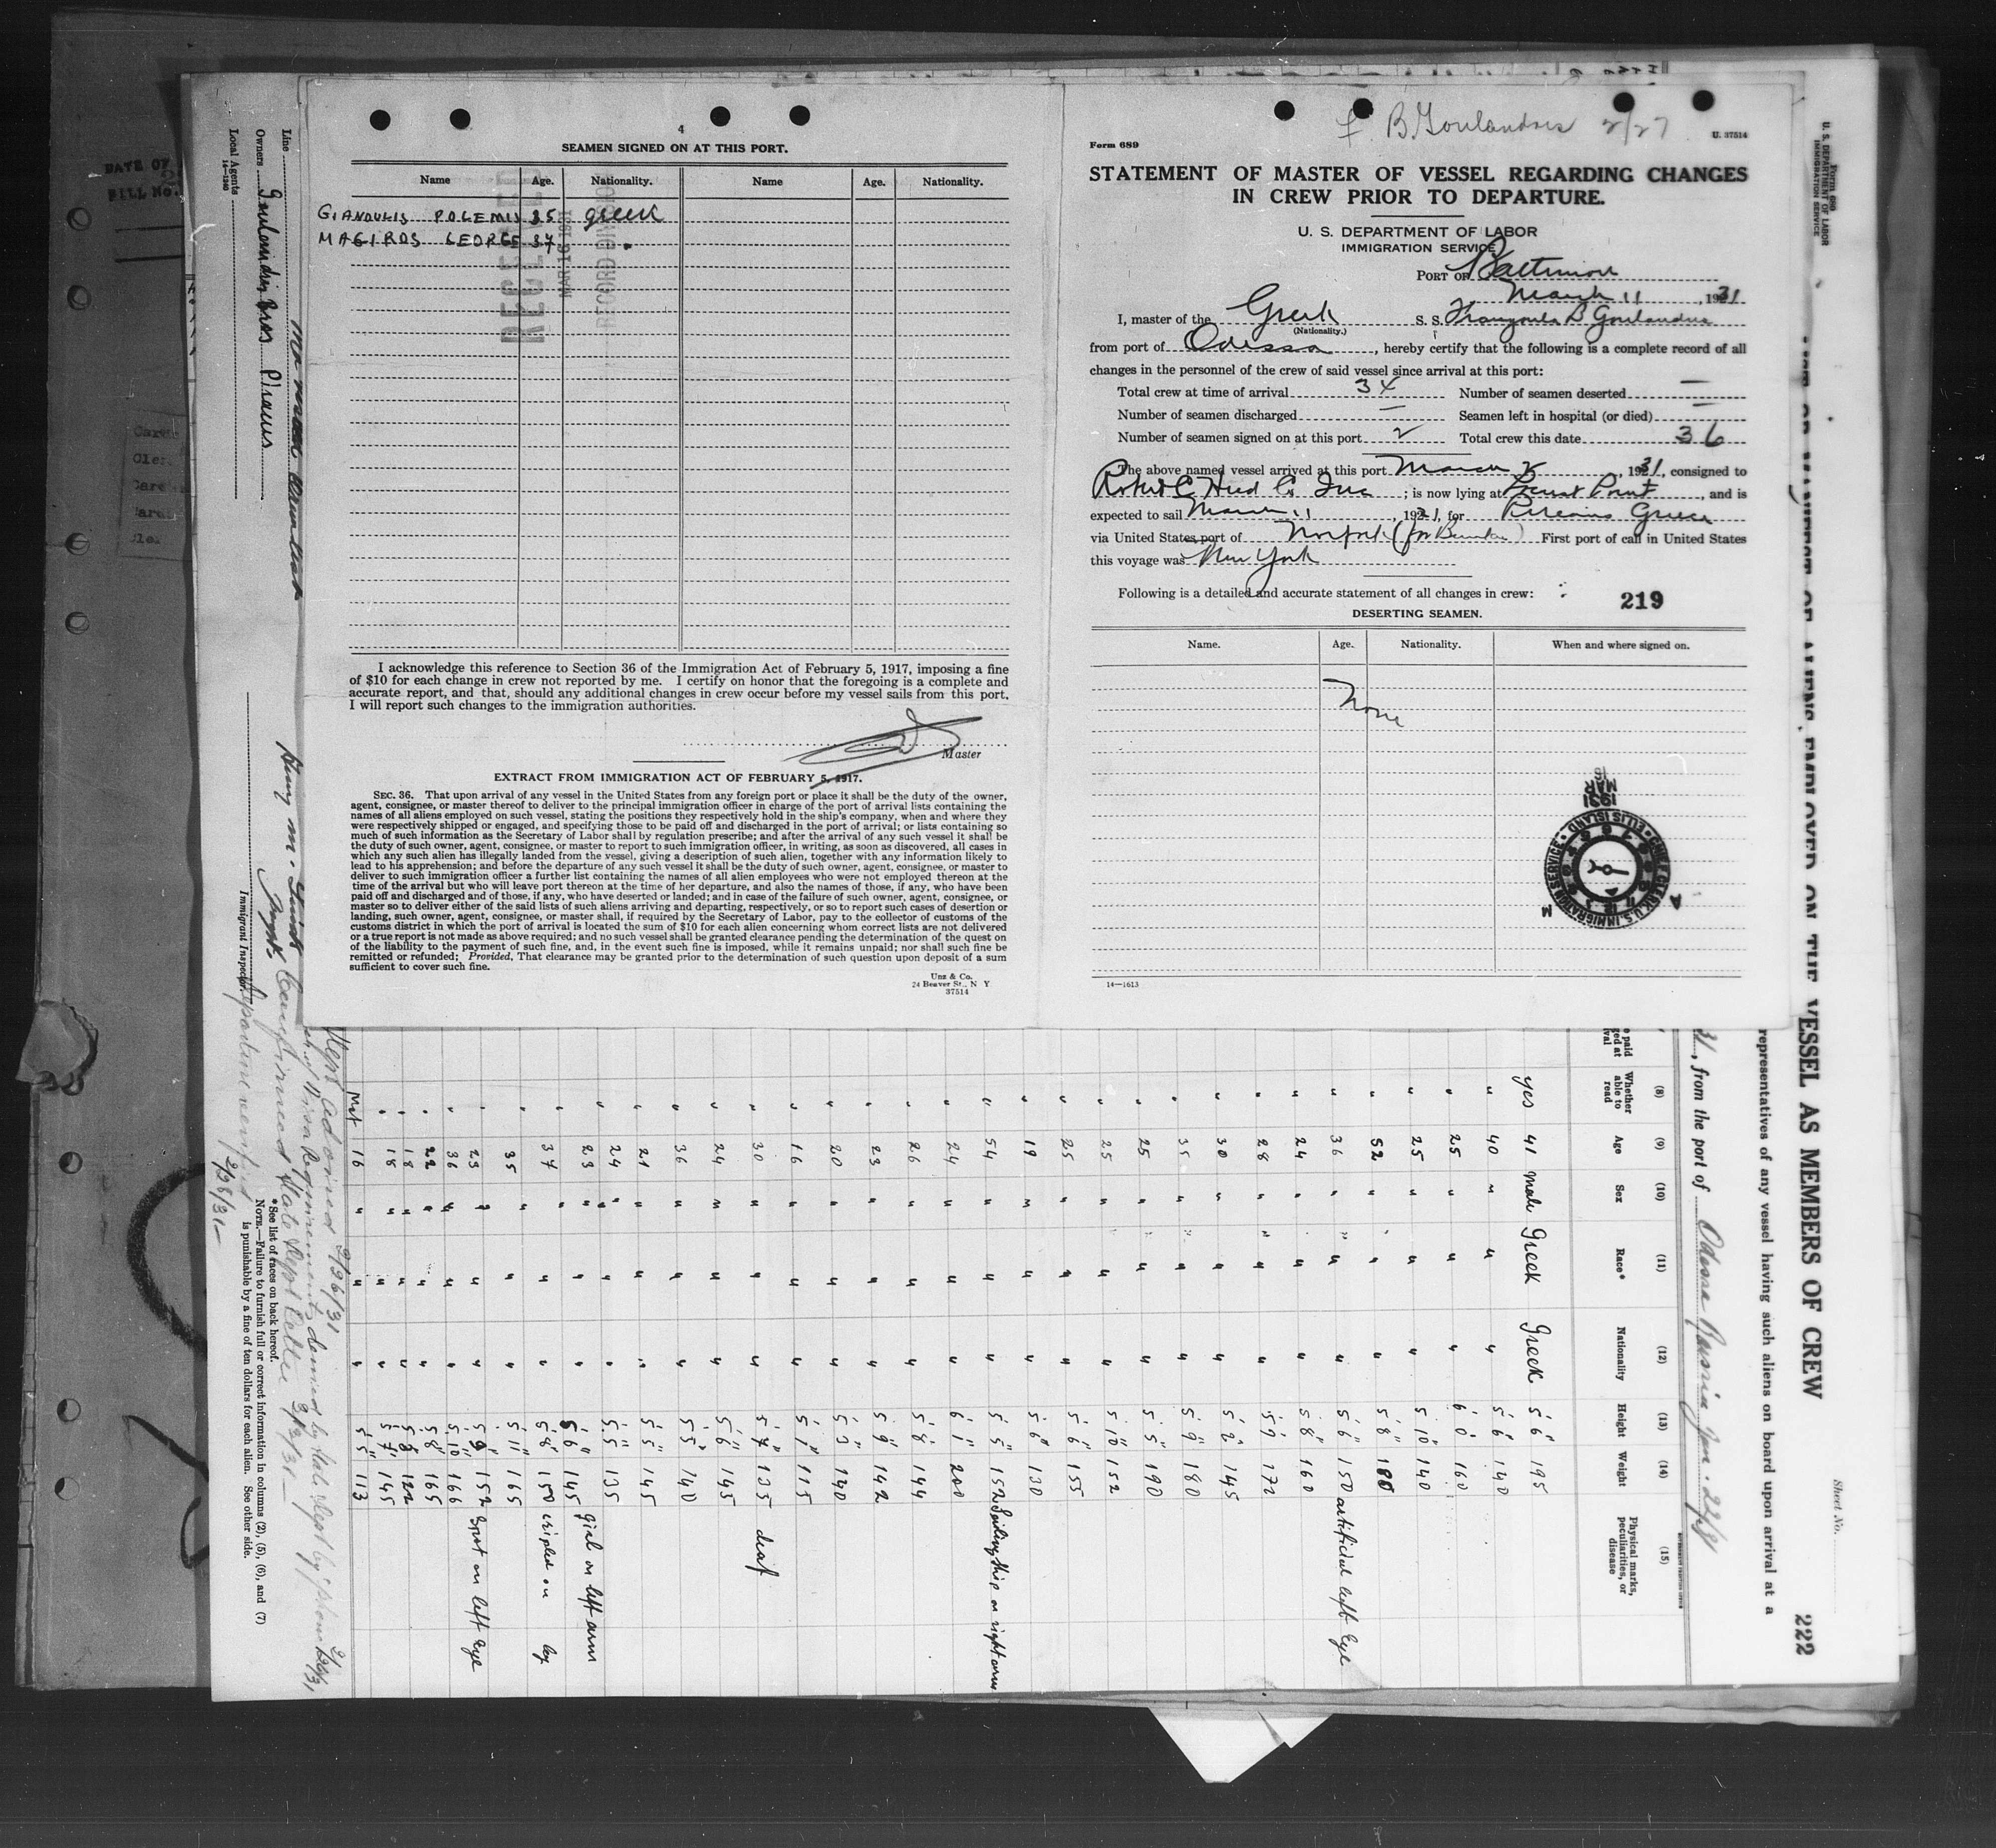 4
SEAMEN SIGNED ON AT THIS PORT.
Name Age. Nationality. Name Age. Nationality.
GIANOULIS POLEMIS 35 greek
MAGIROS GEORGE 37 "
RECEIVED
MAR 16 1931
RECORD DIVISION
I acknowledge this reference to Section 36 of the Immigration Act of February 5, 1917, imposing a fine
of $10 for each change in crew not reported by me. I certify on honor that the foregoing is a complete and
accurate report, and that, should any additional changes in crew occur before my vessel sails from this port,
I will report such changes to the immigration authorities.
Master
EXTRACT FROM IMMIGRATION ACT OF FEBRUARY 5, 1917.
SEC. 36. That upon arrival of any vessel in the United States from any foreign port or place it shall be the duty of the owner,
agent, consignee, or master thereof to deliver to the principal immigration officer in charge of the port of arrival lists containing the
names of all aliens employed on such vessel, stating the positions they respectively hold in the ship's company, when and where they
were respectively shipped or engaged, and specifying those to be paid off and discharged in the port of arrival; or lists containing so
much of such information as the Secretary of Labor shall by regulation prescribe; and after the arrival of any such vessel it shall be
the duty of such owner, agent, consignee, or master to report to such immigration officer, in writing, as soon as discovered, all cases in
which any such alien has illegally landed from the vessel, giving a description of such alien, together with any information likely to
lead to his apprehension; and before the departure of any such vessel it shall be the duty of such owner, agent, consignee, or master to
deliver to such immigration officer a further list containing the names of all alien employees who were not employed thereon at the
time of the arrival but who will leave port thereon at the time of her departure, and also the names of those, if any, who have been
paid off and discharged and of those, if any, who have deserted or landed; and in case of the failure of such owner, agent, consignee, or
master so to deliver either of the said lists of such aliens arriving and departing, respectively, or so to report such cases of desertion or
landing, such owner, agent, consignee, or master shall, if required by the Secretary of Labor, pay to the collector of customs of the
customs district in which the port of arrival is located the sum of $10 for each alien concerning whom correct lists are not delivered
or a true report is not made as above required; and no such vessel shall be granted clearance pending the determination of the quest on
of the liability to the payment of such fine, and, in the event such fine is imposed, while it remains unpaid; nor shall such fine be
remitted or refunded; Provided, That clearance may be granted prior to the determination of such question upon deposit of a sum
sufficient to cover such fine.
Unz & Co.
24 Beaver St., N Y
37514
f B Goulandris 2/27
U. 37514
Form 689
STATEMENT OF MASTER OF VESSEL REGARDING CHANGES
IN CREW PRIOR TO DEPARTURE.
U. S. DEPARTMENT OF LABOR
IMMIGRATION SERVICE
PORT OF Baltimore
March 11, 1931
I, master of the Greek S. S. Frangoula B Goulandris
(Nationality.)
from port of Odessa, hereby certify that the following is a complete record of all
changes in the personnel of the crew of said vessel since arrival at this port:
Total crew at time of arrival 34 Number of seamen deserted —
Number of seamen discharged — Seamen left in hospital (or died) —
Number of seamen signed on at this port 2 Total crew this date 36
The above named vessel arrived at this port March 2, 1931, consigned to
Robert C Herd Co Inc; is now lying at Locust Point, and is
expected to sail March 11, 1931, for Piraeus Greece
via United States port of Norfolk (for Bunker) First port of call in United States
this voyage was New York
Following is a detailed and accurate statement of all changes in crew:
219
DESERTING SEAMEN.
Name. Age. Nationality. When and where signed on.
None
MAR 1931
CHIEF CLERK, U.S. IMMIGRATION SERVICE
ELLIS ISLAND
14—1613
Form 689
U. S. DEPARTMENT OF LABOR
IMMIGRATION SERVICE
Sheet No.
222
VESSEL AS MEMBERS OF CREW
representatives of any vessel having such aliens on board upon arrival at a
31, from the port of Odessa Russia Jan. 27/31
(8) (9) (10) (11) (12) (13) (14) (15)
Whether able to read Age Sex Race* Nationality Height Weight Physical marks, peculiarities, or disease
yes 41 male Greek Greek 5'6" 195
" 40 " " " 5'6" 140
" 25 " " " 6'0" 160
" 25 " " " 5'10" 140
" 52 " " " 5'8" 180
" 36 " " " 5'6" 150 artificial left Eye
" 24 " " " 5'8" 160
" 28 " " " 5'9" 172
" 30 " " " 145
" 35 " " " 5'9" 180
" 25 " " " 5'5" 190
" 25 " " " 5'10" 152
" 25 " " " 5'6" 155
" 19 " " " 5'6" 130
" 54 " " " 5'5" 152 Sailing ship on right arm
" 24 " " " 6'1" 200
" 26 " " " 5'8" 144
" 23 " " " 5'9" 142
" 20 " " " 140
" 16 " " " 5'1" 115
" 30 " " " 5'7" 135 deaf
" 24 " " " 5'6" 145
" 36 " " " 5'5" 140
" 21 " " " 5'5" 145
" 24 " " " 5'5" 135
" 23 " " " 5'6" 145 girl on left arm
" 37 " " " 5'8" 150 cripled on leg
" 35 " " " 5'11" 165
" 23 " " " 5'9" 152 Spot on left Eye
" 36 " " " 5'10" 166
" 22 " " " 5'8" 165
" 18 " " " 5'8" 122
" 18 " " " 5'7" 145
16 " " " 5'5" 113
*See list of races on back hereof.
NOTE.—Failure to furnish full or correct information in columns (2), (5), (6), and (7)
is punishable by a fine of ten dollars for each alien. See other side.
2/28/31
Line
Owners Goulandris Bros Piraeus
Local Agents
14-1240
Immigrant Inspector.
DATE OF
BILL No.